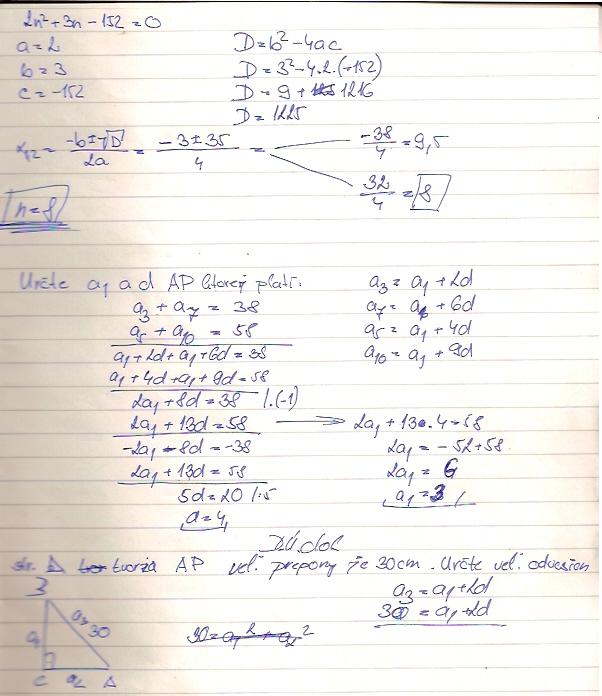 2n² + 3n - 152 = 0
a = 2
b = 3
c = -152
D = b² - 4ac
D = 3² - 4.2.(-152)
D = 9 + 1216
D = 1225
x₁,₂ = -b±√D / 2a = -3 ± 35 / 4 =
-38/4 = 9,5
32/4 = 8
n = 8
Určte a₁ a d AP ktorej platí:
a₃ + a₇ = 38
a₅ + a₁₀ = 58
a₁ + 2d + a₁ + 6d = 38
a₁ + 4d + a₁ + 9d = 58
2a₁ + 8d = 38 /.(-1)
2a₁ + 13d = 58
-2a₁ - 8d = -38
2a₁ + 13d = 58
5d = 20 /:5
d = 4
a₃ = a₁ + 2d
a₇ = a₁ + 6d
a₅ = a₁ + 4d
a₁₀ = a₁ + 9d
2a₁ + 13.4 = 58
2a₁ = -52 + 58
2a₁ = 6
a₁ = 3
str. Δ tvoria AP veľ. prepony je 30cm. Určte veľ. odvesien
a₃ = a₁ + 2d
30 = a₁ + 2d
30 = a₁² + a₂²
B
a₁
a₃ 30
C a₂ A